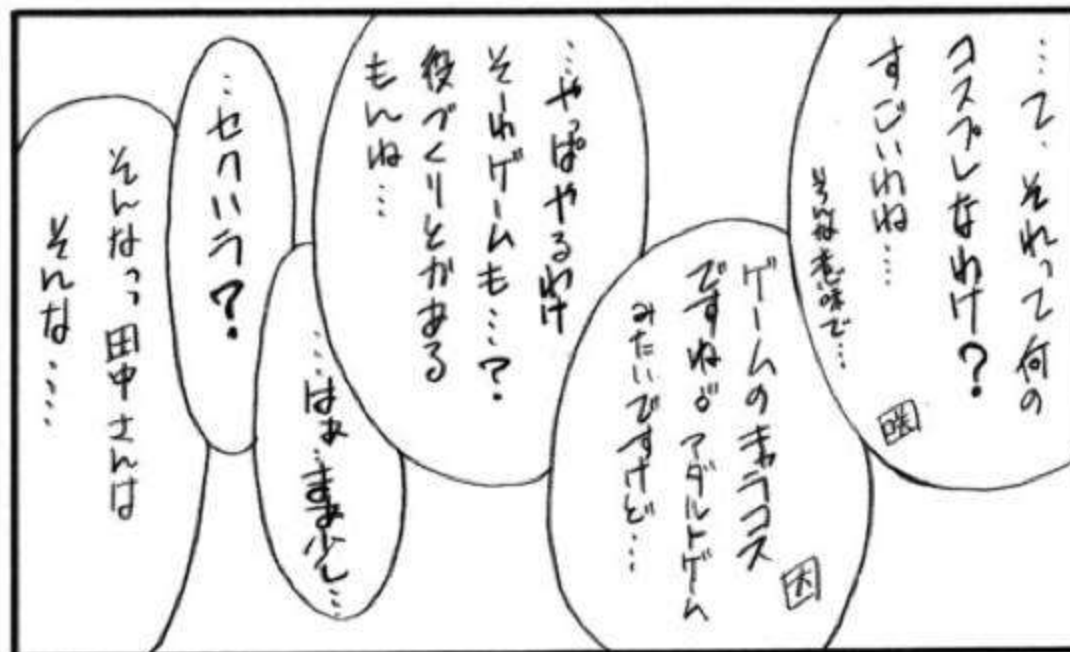 …て、それって何の
コスプレなわけ？
すごいわね……
そんな意味で…
ゲームのキャラコス
ですね。アダルトゲーム
みたいですけど…
…やっぱやるわけ
そーゆゲームも…？
役づくりとかある
もんね…
……はぁ…まぁ少し…
…セクハラ？
そんなっっ田中さんは
そんな……